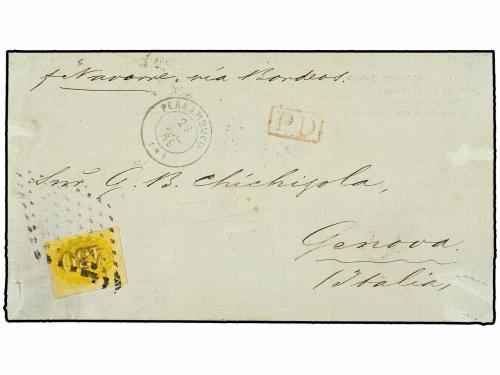 p "Navarre, via Bordeos.
PERNAMBUCO
24
65
(*)
P.D
Snr. G. B. Chichizola,
Genova
Italia,
430